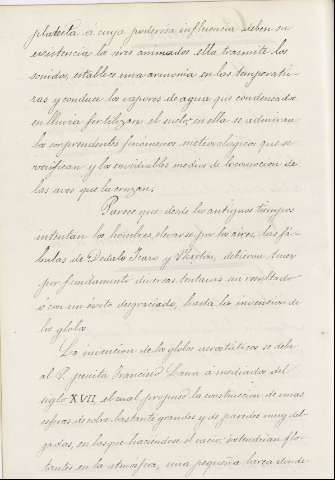 planeta á cuya poderosa influencia deben su
existencia los seres animados, ella trasmite los
sonidos, establece una armonía en las temperatu-
ras y conduce los vapores de agua que condensados
en lluvia fertilizan el suelo; en ella se admiran
los sorprendentes fenómenos meteorológicos que se
verifican y los envidiables medios de locomoción de
las aves que la cruzan.
Parece que desde los antiguos tiempos
intentan los hombres elevarse por los aires, las fá-
bulas de Dedalo Icaro y debieron tener
por fundamento diversas tentativas sin resultado
ó con un éxito desgraciado, hasta la invención de
los globos.
La invencion de los globos aerostáticos se debe
al P. jesuita Francisco Lana á mediados del
siglo XVII, el cual propuso la construcción de unas
esferas de cobre bastante grandes y de paredes muy del-
gadas, en las que haciéndose el vacío, sostendrían flo-
tantes en la atmósfera, una pequeña barca donde